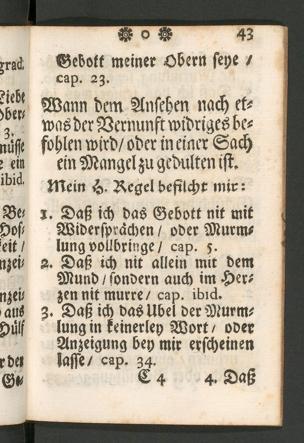 ❁ o ❁ 43
Gebott meiner Obern seye /
cap. 23.
Wann dem Ansehen nach et-
was der Vernunft widriges be-
fohlen wird / oder in einer Sach
ein Mangel zu gedulten ist.
Mein H. Regel befilcht mir:
1. Daß ich das Gebott nit mit
Widersprächen / oder Murm-
lung vollbringe / cap. 5.
2. Daß ich nit allein mit dem
Mund / sondern auch im Her-
zen nit murre / cap. ibid.
3. Daß ich das Übel der Murm-
lung in keinerley Wort / oder
Anzeigung bey mir erscheinen
lasse / cap. 34.
C 4 4. Daß
grad.
Liebe
Ober-
3.
müsse
e ein
ibid.
Be-
Hof-
keit /
nzei-
nzei-
aus
Hülf
r den
Ge-